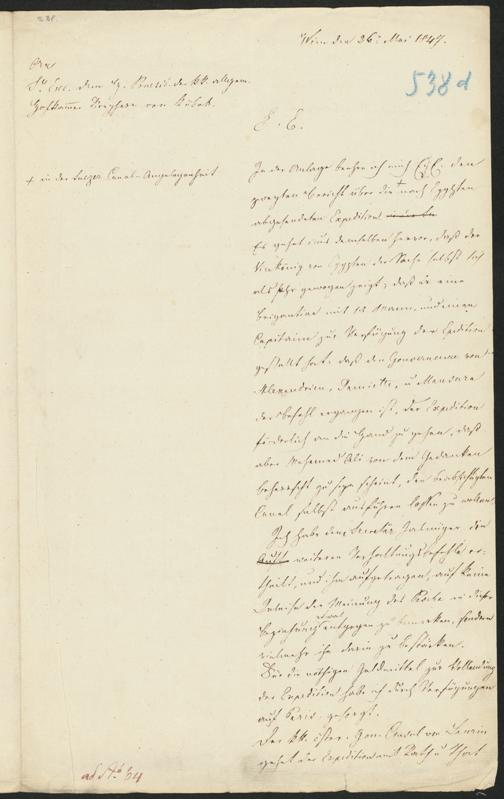 Wien den 26t Mai 1847.
An
Sr Exc. dem H. Präsid. der KK. allgem.
Hofkammer Freyherr von Kübek.
538d
E. E.
+ in der Suezer Canal-Angelegenheit
In der Anlage beehre ich mich E. E. den
zweyten Bericht über die + nach Egypten
abgesendeten Expedition
Es gehet aus demselben hervor, daß der
Vicekönig von Egypten der Sache selbst sich
als sehr gewogen zeigt; daß er eine
Brigantine mit 12 Mann, und einen
Capitaine zur Verfügung der Expedition
gestellt hat. daß den Gouverneure von
Alexandrien, Damiette, u Mansura
der Befehl ergangen ist, der Expedition
förderlich an die Hand zu gehen, daß
aber Mehemed Ali von dem Gedanken
beherrscht zu seyn scheint, den beabsichtigten
Canal selbst ausführen lassen zu wollen.
Ich habe dem Secretär die
weiteren Verhaltungsbefehle er-
theilt, und ihm aufgetragen, auf keine
Weise der Meinung des in dieser
Beziehung etwas entgegen zu bemerken, sondern
vielmehr ihn darin zu bestärken.
Für die nöthigen Geldmittel zur Vollendung
der Expedition habe ich durch Verfügungen
auf Paris, gesorgt.
Der KK. öster. Gen. Consul von Laurin
gehet der Expedition mit Rath u That